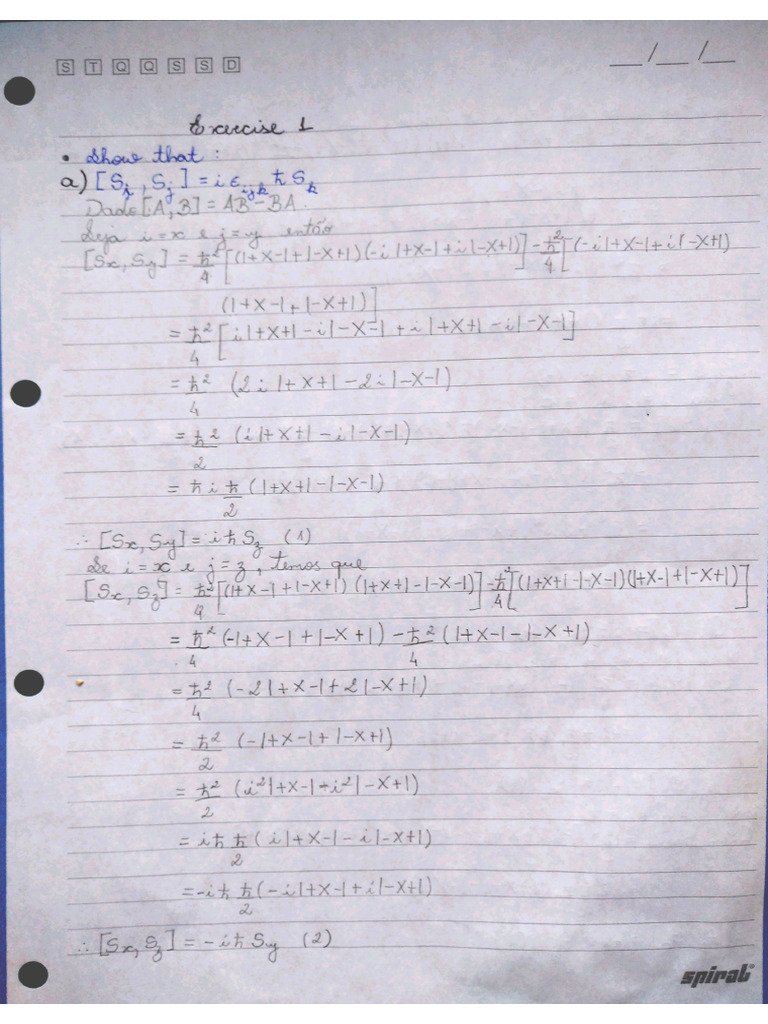 S T Q Q S S D __/__/__
Exercise 1
• Show that :
a) [S_i , S_j ] = i ε_ijk ħ S_k
Dado [A, B] = AB - BA.
Seja i = x e j = y então
[Sx, Sy] = ħ²/4 [(|+X-|+|-X+|)(-i|+X-|+i|-X+|)] - ħ²/4 [(-i|+X-|+i|-X+|)
(|+X-|+|-X+|)]
= ħ²/4 [i|+X+| - i|-X-| + i|+X+| - i|-X-|]
= ħ²/4 (2i|+X+| - 2i|-X-|)
= ħ²/2 (i|+X+| - i|-X-|)
= ħ i ħ/2 (|+X+| - |-X-|)
∴ [Sx, Sy] = iħSz (1)
Se i = x e j = z, temos que
[Sx, Sz] = ħ²/4 [(|+X-|+|-X+|)(|+X+|-|-X-|)] - ħ²/4 [(|+X+|-|-X-|)(|+X-|+|-X+|)]
= ħ²/4 (-|+X-|+|-X+|) - ħ²/4 (|+X-|-|-X+|)
= ħ²/4 (-2|+X-|+2|-X+|)
= ħ²/2 (-|+X-|+|-X+|)
= ħ²/2 (i²|+X-|-i²|-X+|)
= iħ ħ/2 (i|+X-|-i|-X+|)
= -iħ ħ/2 (-i|+X-|+i|-X+|)
∴ [Sx, Sz] = -iħSy (2)
spiral®